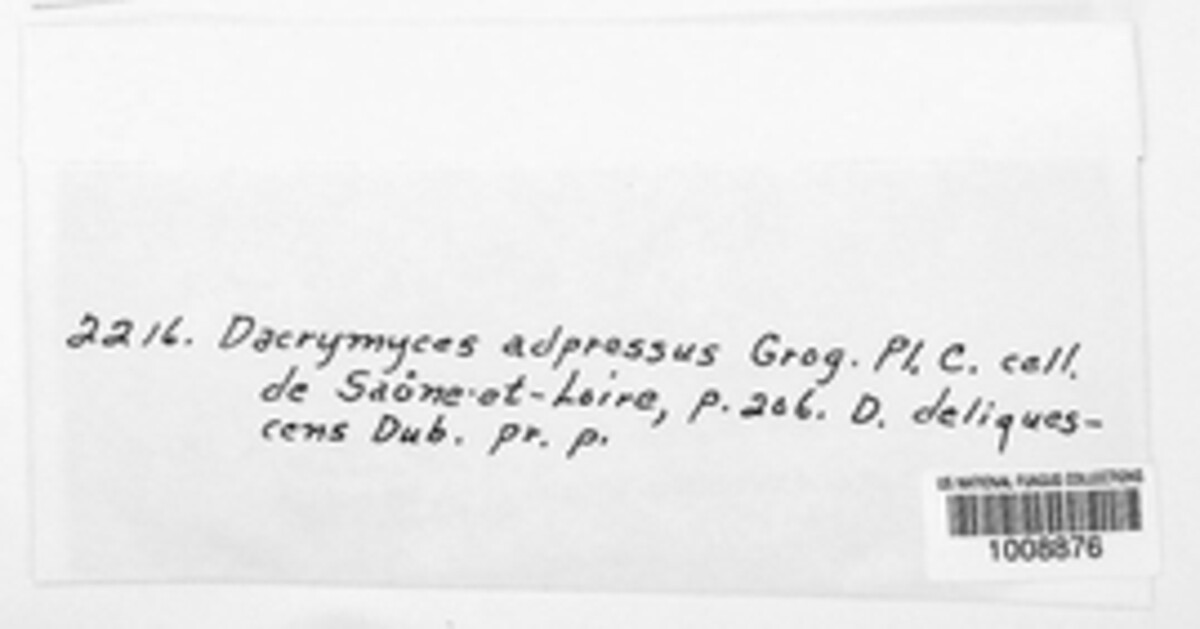 2216. Dacrymyces adpressus Grog. Pl. C. cell.
de Saône-et-Loire, p. 206. D. deliques-
cens Dub. pr. p.
US NATIONAL FUNGUS COLLECTIONS
1008876